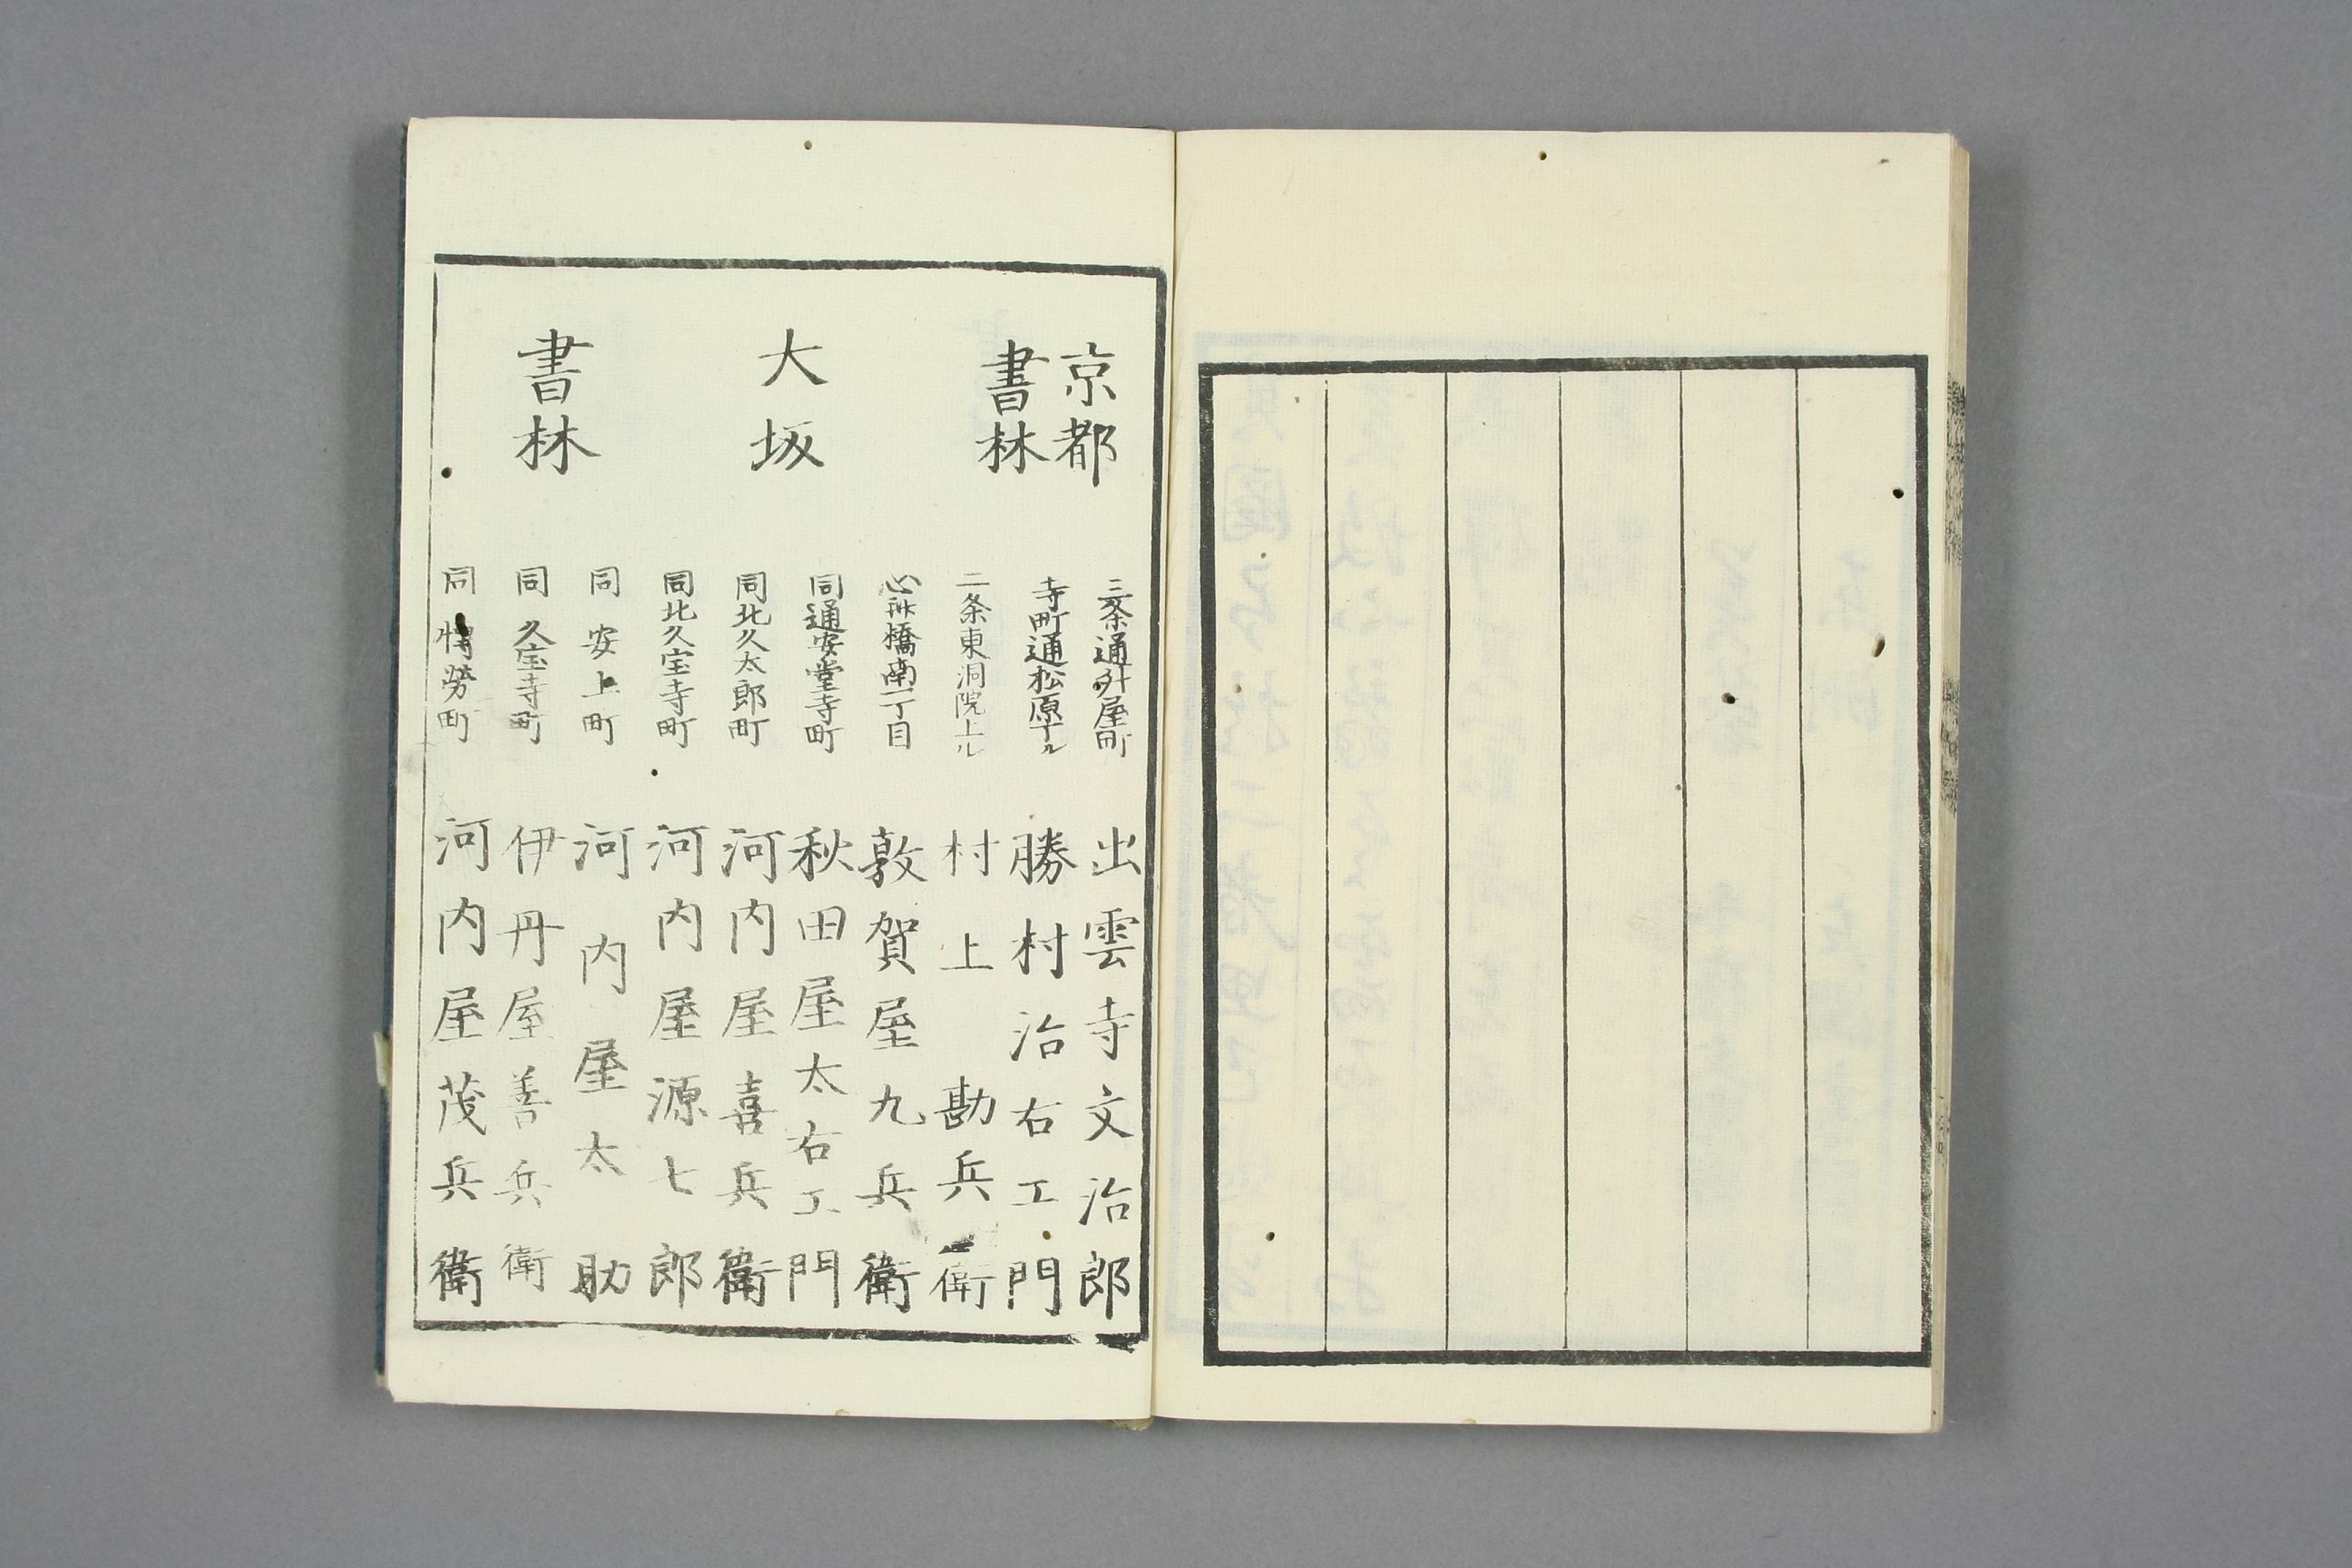 京都
書林
三条通升屋町 出雲寺文治郎
寺町通松原下ル 勝村治右エ門
二条東洞院上ル 村上勘兵衛
大坂
書林
心斎橋南一丁目 敦賀屋九兵衛
同通安堂寺町 秋田屋太右エ門
同北久太郎町 河内屋喜兵衛
同北久宝寺町 河内屋源七郎
同安土町 河内屋太助
同久宝寺町 伊丹屋善兵衛
同博労町 河内屋茂兵衛